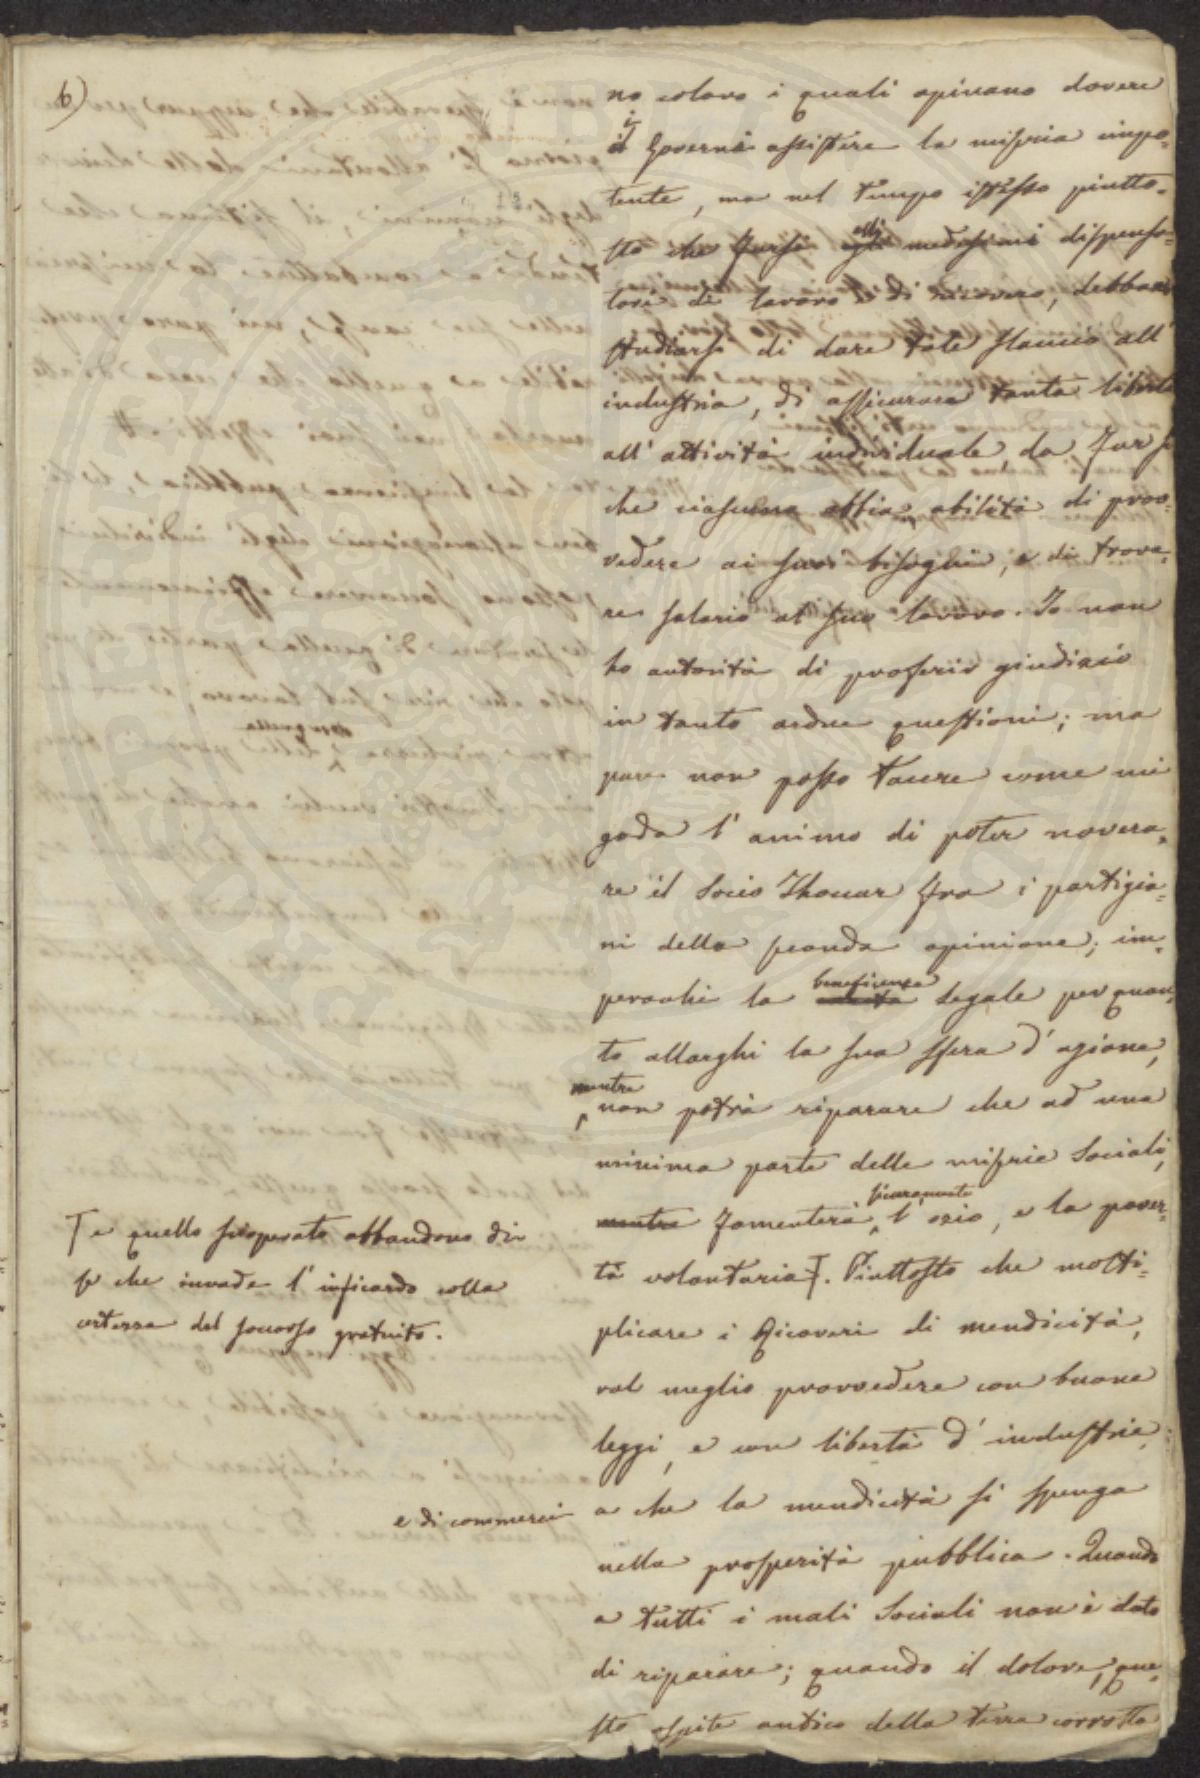 6)
no coloro i quali opinano dovere
i Governi assistere la miseria impo=
tente, ma nel tempo istesso piutto=
sto che farsi essi medesimi dispensa=
tori di lavoro e di ricovero, debbano
studiarsi di dare tale slancio all'
industria, di assicurare tanta libertà
all'attività individuale da far sì
che ciascuno abbia abilità di prov=
vedere ai suoi bisogni, e di trova=
re salario al suo lavoro. Io non
ho autorità di proferir giudizio
in tanto ardue questioni; ma
pure non posso tacere come mi
goda l'animo di poter novera=
re il Socio Thouar fra i partigia=
ni della seconda opinione; im=
perochè la beneficenza legale per quan=
to allarghi la sua sfera d'azione,
mentre non potrà riparare che ad una
minima parte delle miserie Sociali,
mentre fomenterà sicuramente l'ozio, e la pover=
tà volontaria T. Piuttosto che molti=
plicare i Ricoveri di mendicità,
val meglio provvedere con buone
leggi, e con libertà d'industrie
a che la mendicità si spenga
nella prosperità pubblica. Quando
a tutti i mali Sociali non è dato
di riparare; quando il dolore, que=
sto ospite antico della terra corrotta
T e quello scioperato abbandono di
se che invade l'infingardo colla
certezza del soccorso gratuito.
e di commerci